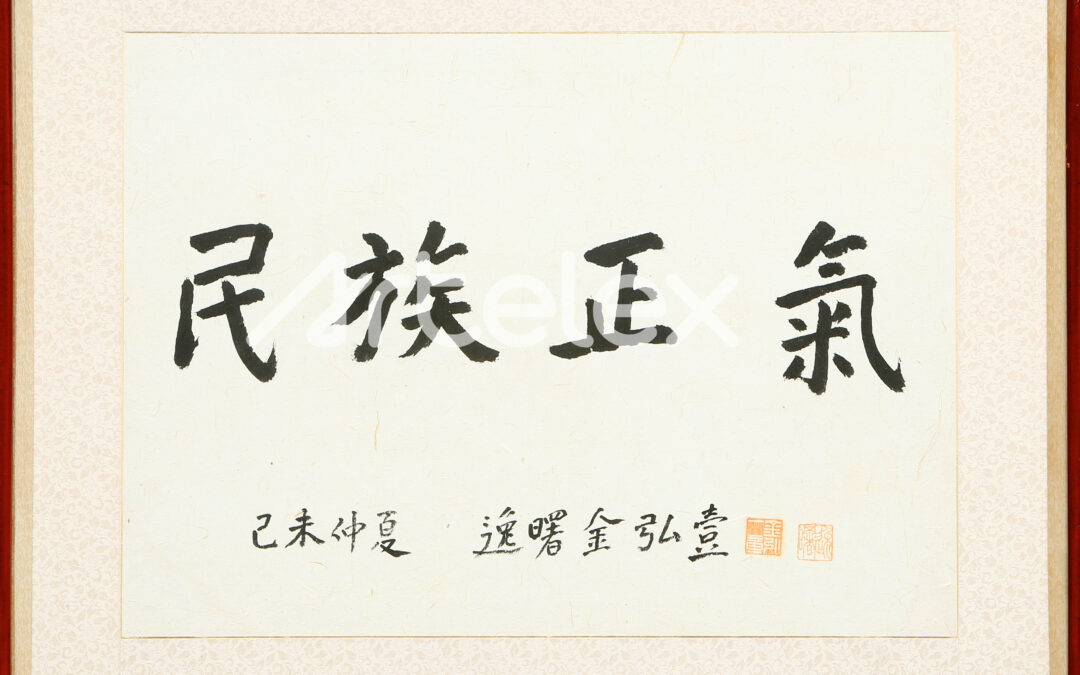 民族正氣
己未仲夏 逸曙金弘壹
Artelex